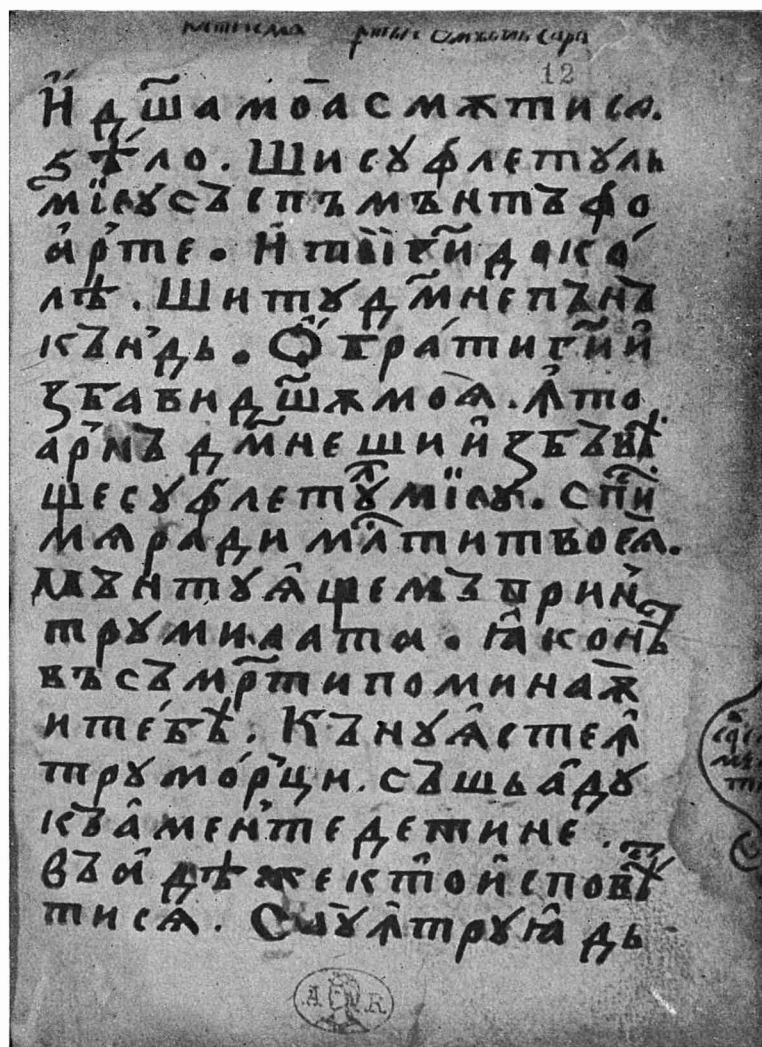 12
И҆ дш҃а моа смѫтисѧ.
ѕѣло. Шисуфлетуль
мїеусъспъмънтъфо
а́рте. И҆ тїи ги҃ доко́
лѣ. Шиту дм҃непънъ
къндь. Ѻбрати ги҃ и҆
ꙁбави дш҃ѫ моѧ. ꙟто
арнъ дм҃не шии҆ꙁбъвѣ
ще суфлетулмїеу. Сп҃и
мѧ ради млⷭ҇ти твоеѧ.
Мънтуѧщемъ прин
трумилата. ꙗ҆ко нѣⷭ
въ съмр҃ти поминаѫ
и тебѣ. Къ нуѧсте ꙟ
трумо́рци. съшьаду
къамен̾те детине.
въ а҆дѣже кто и҆сповѣⷭ
тисѧ. Сауꙟтруꙗ҆дь
А К